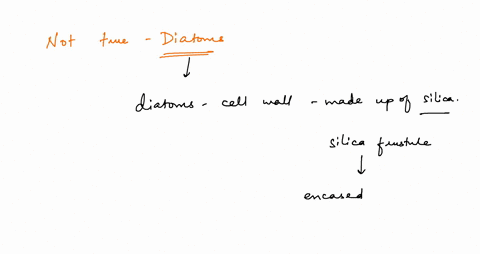 Not true - Diatoms
diatoms - cell wall - made up of silica.
silica frustule
encased